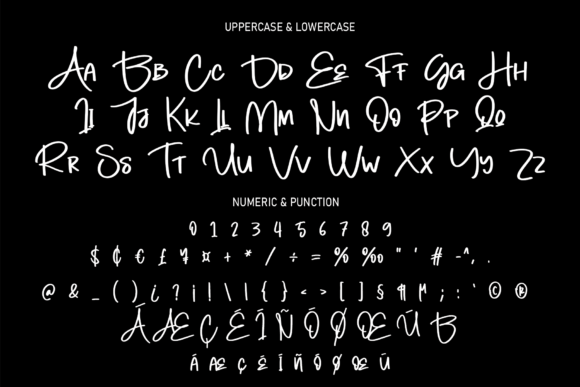 UPPERCASE & LOWERCASE
Aa Bb Cc Dd Ee Ff Gg Hh
Ii Jj Kk Ll Mm Nn Oo Pp Qq
Rr Ss Tt Uu Vv Ww Xx Yy Zz
NUMERIC & PUNCTION
0 1 2 3 4 5 6 7 8 9
$ ₵ € £ ¥ ¤ + * / ÷ = % ‰ " ' # -^, .
@ & _ ( ) ¿ ? ¡ ! \ | { } < > [ ] § ¶ µ ; : ` © ®
Á Æ Ç É Í Ñ Ó Ø Œ Ú
Á Æ Ç É Í Ñ Ó Ø Œ Ú